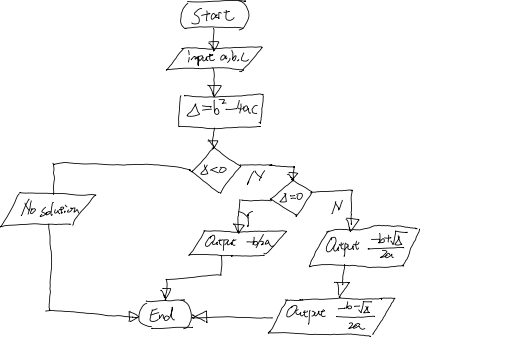 Start
input a,b,c
Δ=b²-4ac
Δ<0
N
Δ=0
Y
N
No solution
Output -b/2a
Output -b+√Δ / 2a
Output -b-√Δ / 2a
End